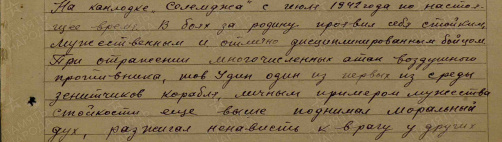 На канлодке „Селемджа" с июля 1942 года по настоя-
щее время. В боях за родину проявил себя стойким,
мужественным и отлично дисциплинированным бойцом.
При отражении многочисленных атак воздушного
противника, тов Удин один из первых из среды
зенитчиков корабля, личным примером мужества
стойкости еще выше поднимал моральный
дух, разжигал ненависть к врагу у других